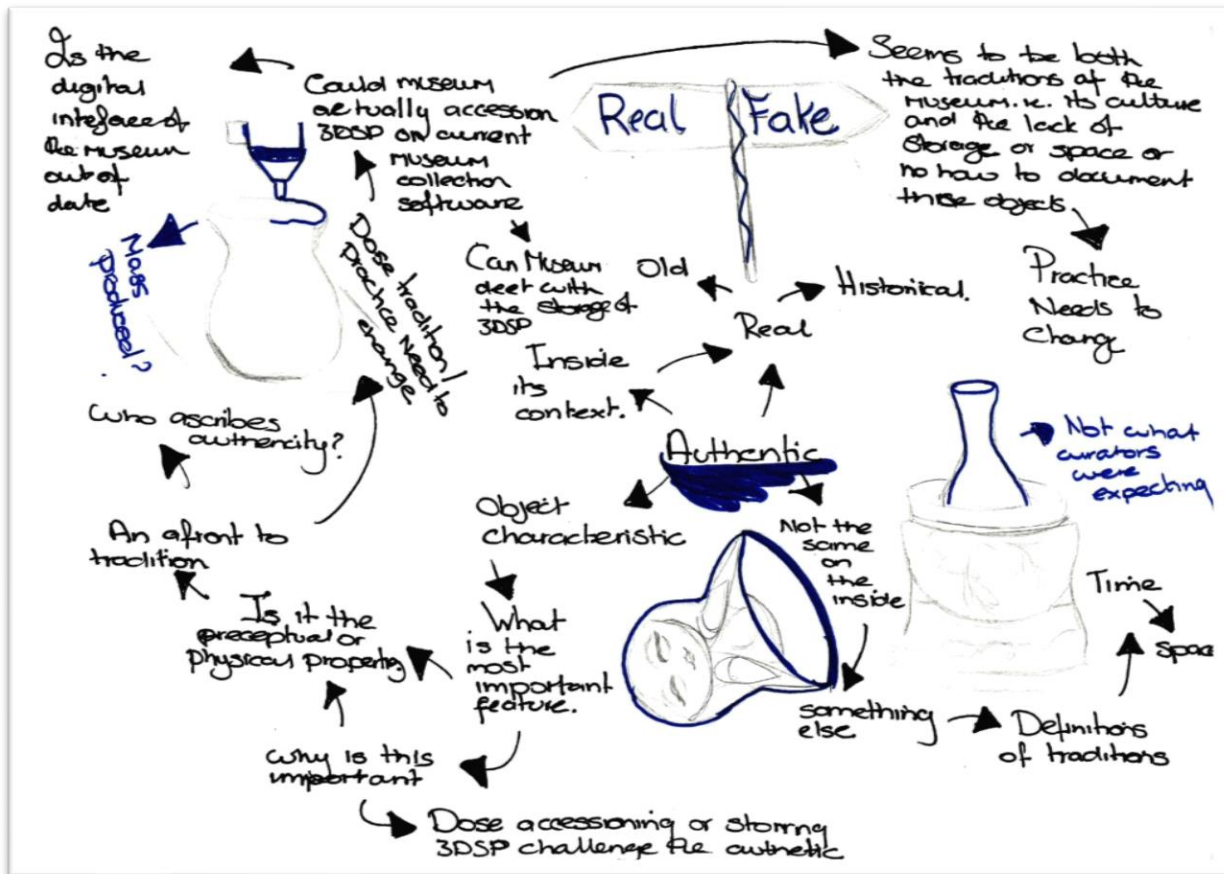 Is the
digital
inteface of
the museum
out of
date
Could museum
actually accession
3DSP on current
museum
collection
software
Real
Fake
Seems to be both
the traditions of the
Museum. ie. Its culture
and the lack of
storage or space or
no how to document
these objects
Practice
Needs to
Change
Mass
produced?
Dose tradition/
practice need to
change
Can Museum
deet with
the storage of
3DSP
Old
Historical.
Real
Inside
its
context.
Who ascribes
authencity?
Authentic
Not what
curators
were
expecting
Object
characteristic
Not the
same
on
the
inside
An afront to
tradition
Is it the
preceptual or
physical property.
What
is the
most
important
feature.
Time
Space
something
else
Definitions
of traditions
Why is this
important
Dose accessioning or storing
3DSP challenge the autnetic